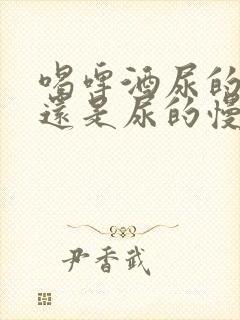 喝啤酒尿的
還是尿的慢
尹香武